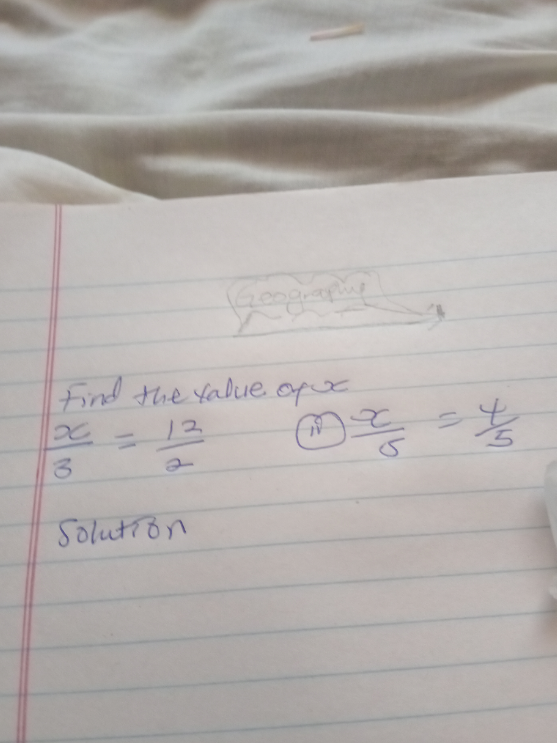 Geography
Find the value of x
x/3 = 12/2 (ii) x/5 = 4/5
Solution